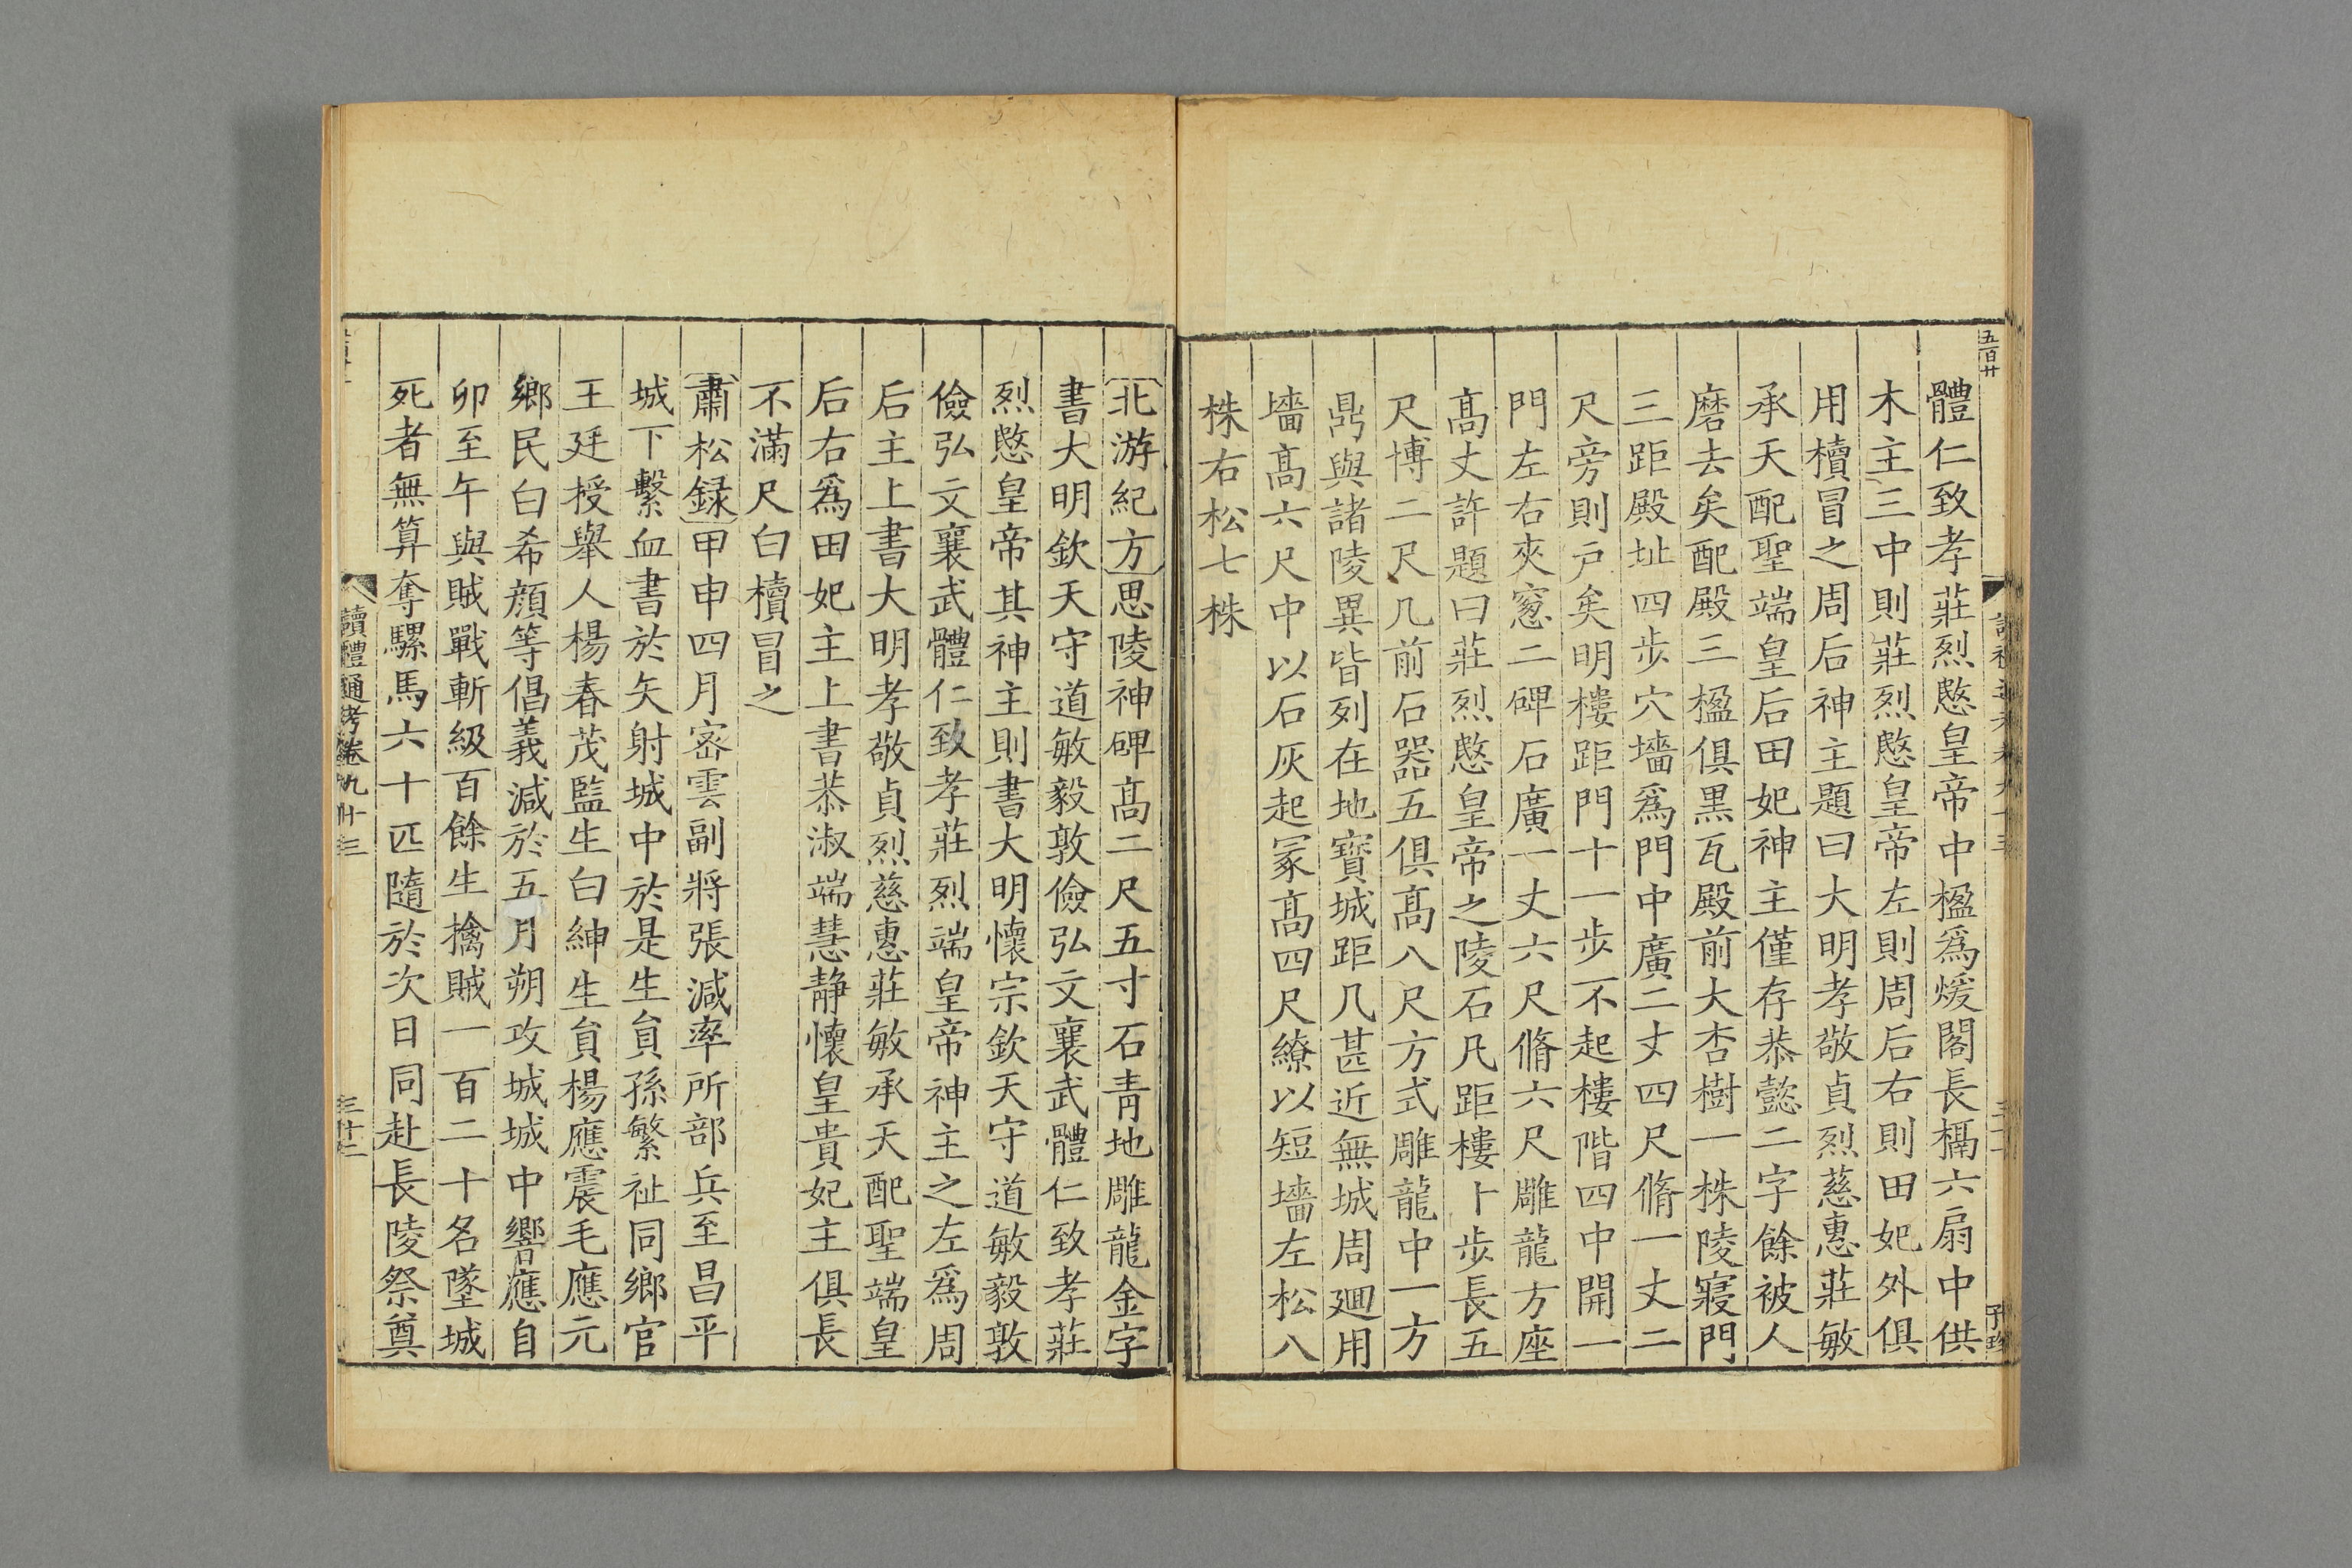 五百廿
體仁致孝莊烈愍皇帝中楹爲煖閣長槅六扇中供
木主三中則莊烈愍皇帝左則周后右則田妃外俱
用櫝冒之周后神主題曰大明孝敬貞烈慈惠莊敏
承天配聖端皇后田妃神主僅存恭懿二字餘被人
磨去矣配殿三楹俱黑瓦殿前大杏樹一株陵寢門
三距殿址四步穴墻爲門中廣二丈四尺脩一丈二
尺旁則戸矣明樓距門十一步不起樓階四中開一
門左右夾窻二碑石廣一丈六尺脩六尺雕龍方座
髙丈許題曰莊烈愍皇帝之陵石凡距樓十步長五
尺博二尺几前石器五俱髙八尺方式雕龍中一方
鼎與諸陵異皆列在地寶城距几甚近無城周廻用
墻髙六尺中以石灰起冡髙四尺繚以短墻左松八
株右松七株
北游紀方思陵神碑髙二尺五寸石靑地雕龍金字
書大明欽天守道敏毅敦儉弘文襄武體仁致孝莊
烈愍皇帝其神主則書大明懷宗欽天守道敏毅敦
儉弘文襄武體仁致孝莊烈端皇帝神主之左爲周
后主上書大明孝敬貞烈慈惠莊敏承天配聖端皇
后右爲田妃主上書恭淑端慧靜懷皇貴妃主俱長
不滿尺白櫝冒之
肅松録甲申四月宻雲副將張減率所部兵至昌平
城下繫血書於矢射城中於是生員孫繁祉同鄉官
王廷授舉人楊春茂監生白紳生員楊應震毛應元
鄉民白希顔等倡義減於五月朔攻城城中響應自
卯至午與賊戰斬級百餘生擒賊一百二十名墜城
死者無算奪騾馬六十匹隨於次日同赴長陵祭奠
讀禮通考卷九十三
三十二